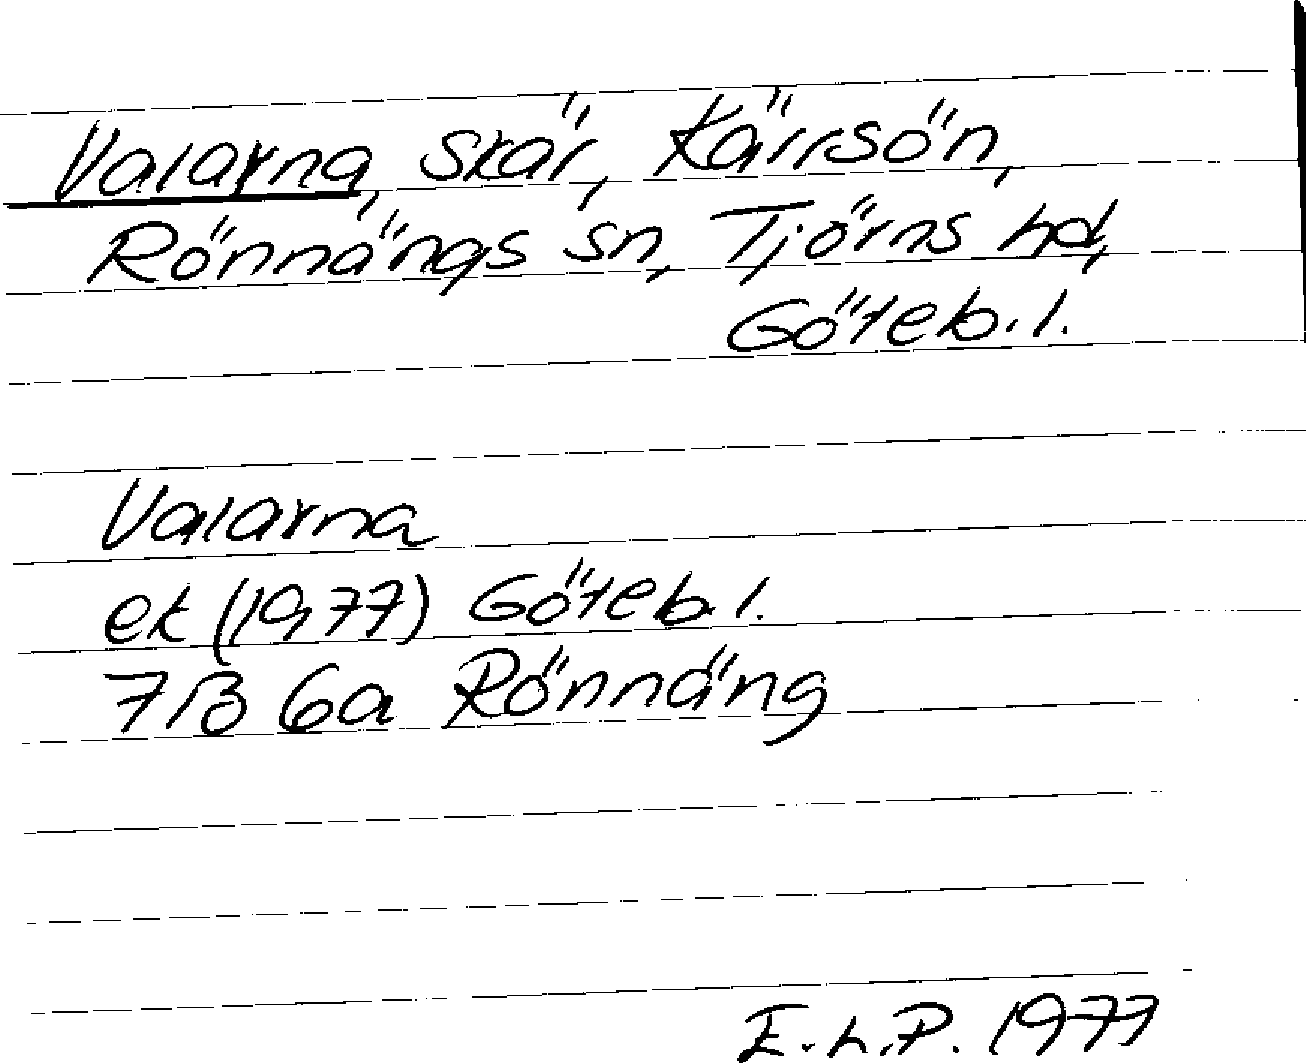 Valarna, skär, Kärrsön,
Rönnängs sn, Tjörns hd,
Göteb. l.
Valarna
ek (1977) Göteb. l.
7B 6a Rönnäng
E.L.P. 1977